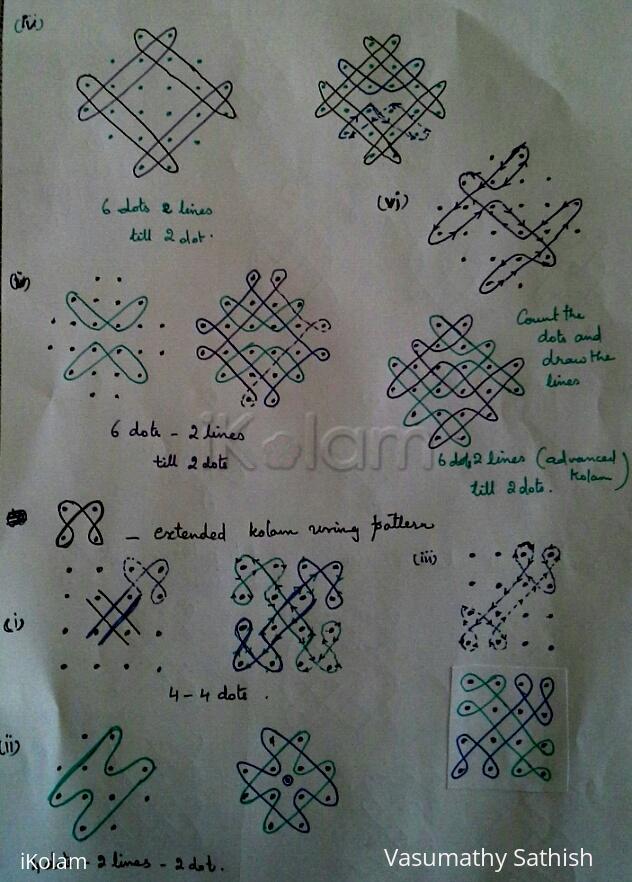 (iv)
6 dots 2 lines
till 2 dot.
(vj)
Count the
dots and
draw the
lines
6 dots - 2 lines
till 2 dots
iKolam
6 dots 2 lines (advanced
kolam)
till 2 dots.
- extended kolam using pattern
(i)
(iii)
4-4 dots.
(ii)
dots - 2 lines - 2 dot.
iKolam
Vasumathy Sathish